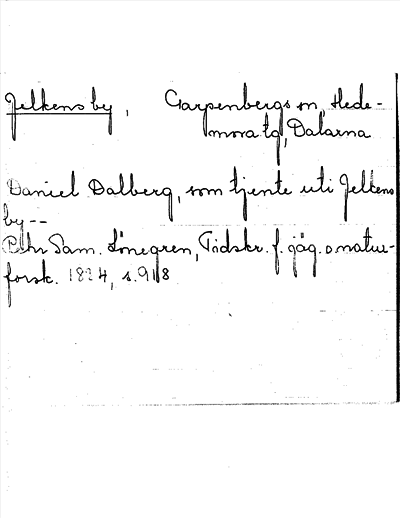 Jelkensby, Garpenbergs sn, Hede-
mora tg, Dalarna
Daniel Dalberg, som tjente uti Jelkens
by--
Pehr Sam. Lönegren, Tidskr. f. jäg. o natur-
forsk. 1834, s. 918